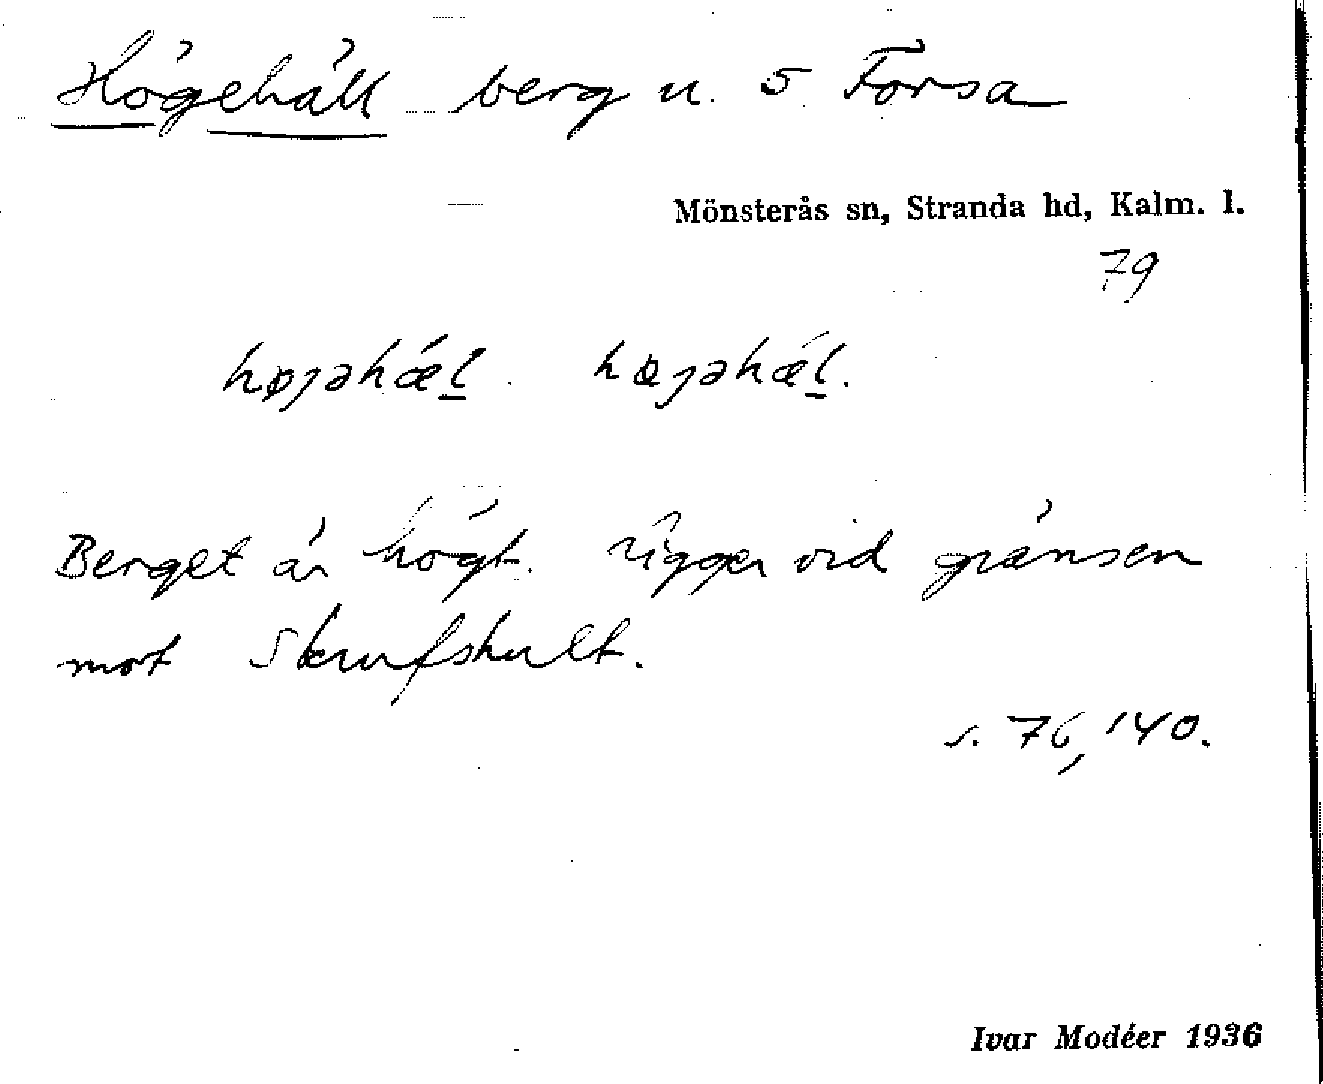 Högehäll berg u. 5 Forsa
Mönsterås sn, Stranda hd, Kalm. l.
79
højəhǽl. hœjəhǽl.
Berget är högt. Ligger vid gränsen
mot Skrufshult.
s. 76, 140.
Ivar Modéer 1936